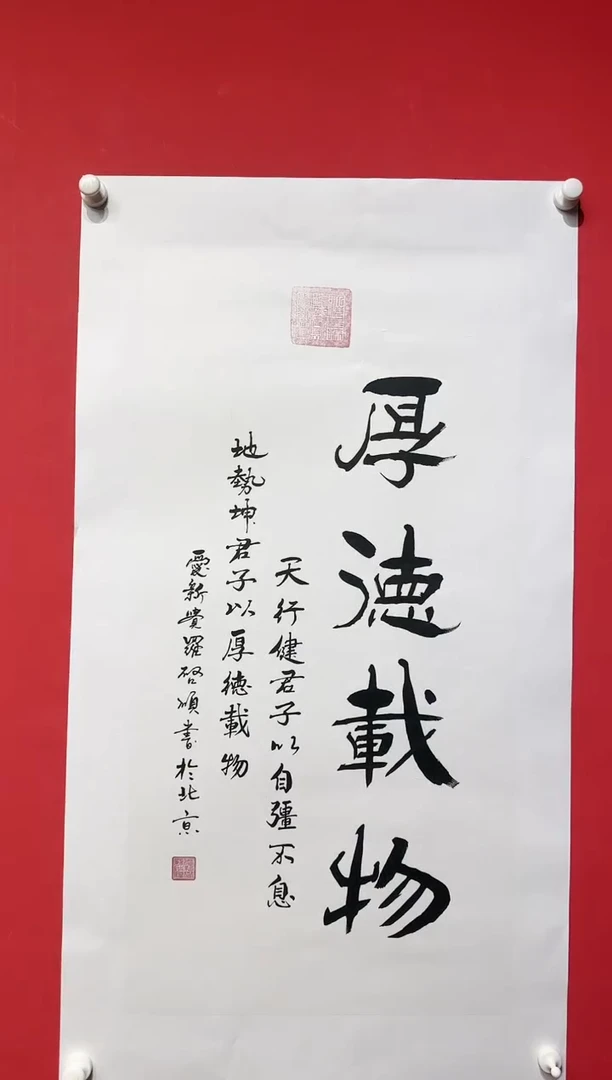 厚德載物
天行健君子以自彊不息
地勢坤君子以厚德載物
愛新覺羅啓順書於北京